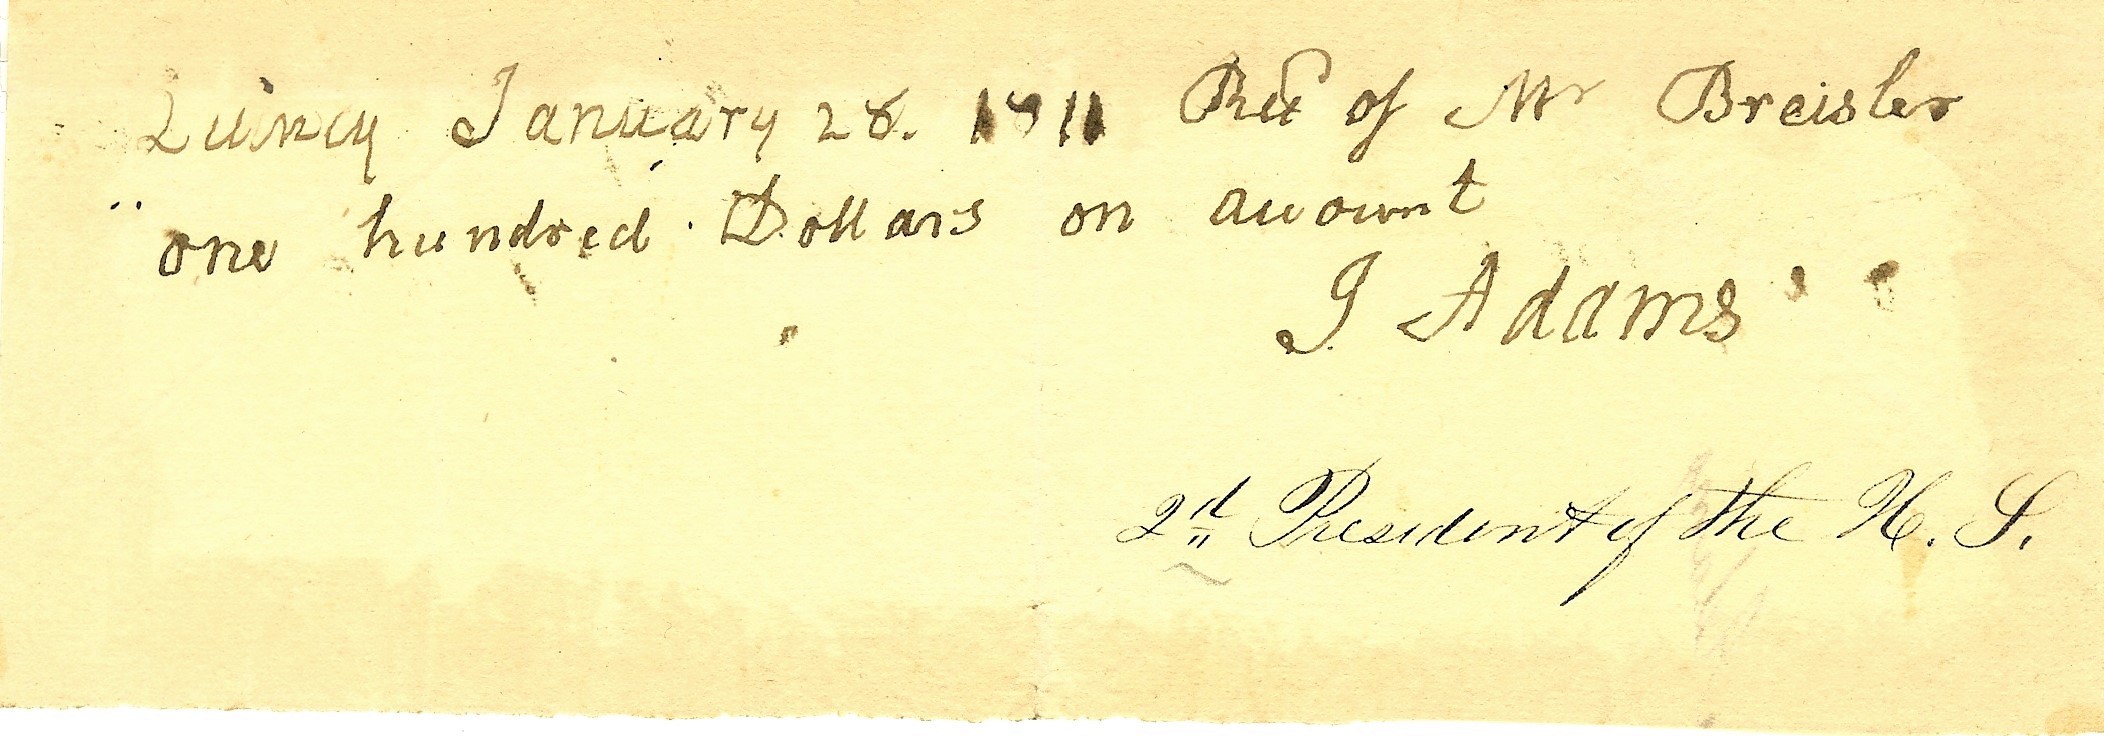 Quincy January 28. 1811 Recd of Mr Breisler
one hundred Dollars on account
J Adams
2d President of the U. S.